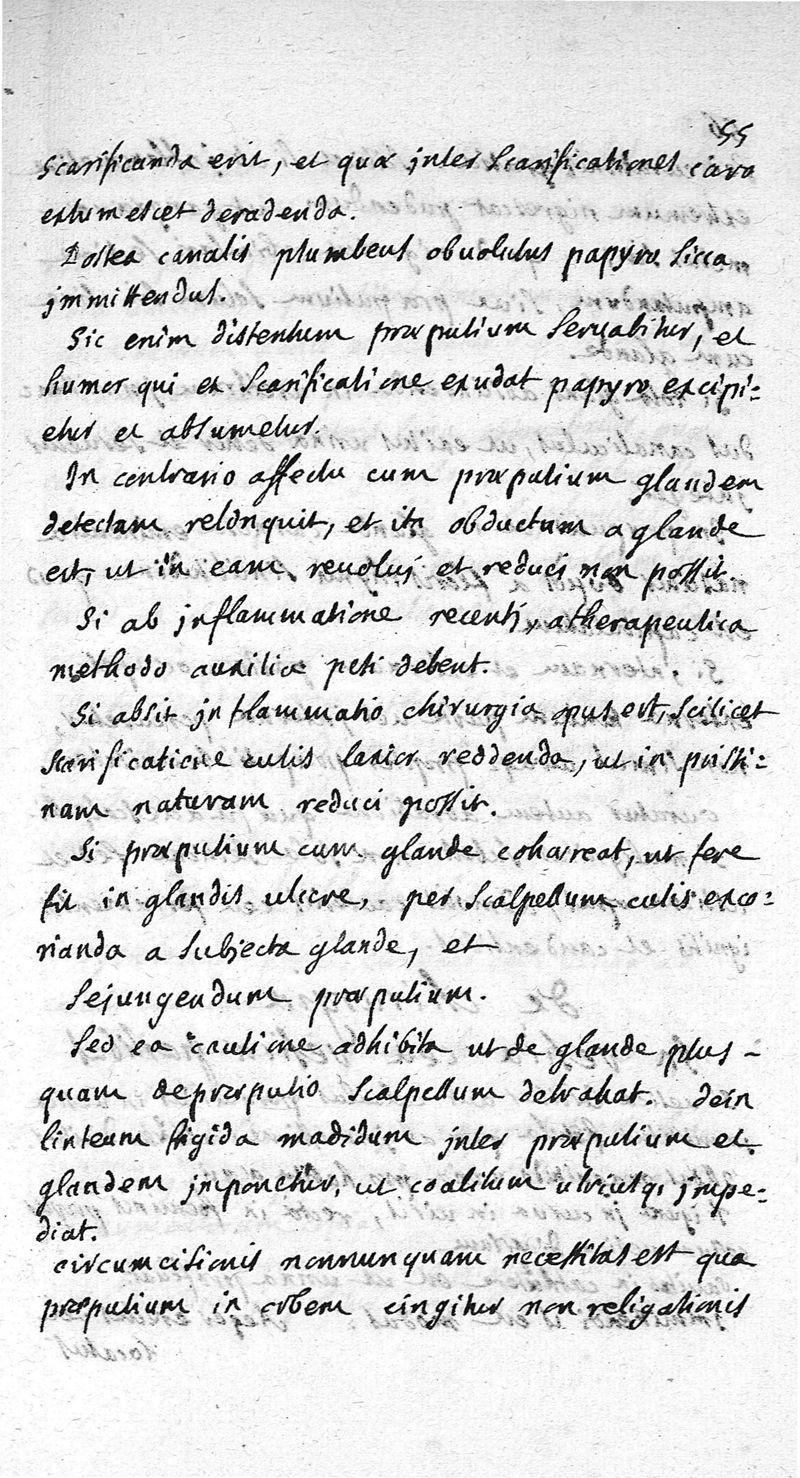 55
scarificanda erit, et quæ inter scarificationes caro
extumescet deradenda.
Postea canalis plumbeus obuolutus papyro sicca
immittendus.
Sic enim distentum præputium seruabitur, et
humor qui ex scarificatione exudat papyro excipi=
etur et absumetur.
In contrario affectu cum præputium glandem
detectam relinquit, et ita obductum a glande
est, ut in eam reuolui et reduci non possit
Si ab inflammatione recenti, a therapeutica
methodo auxilia peti debent.
Si absit inflammatio chirurgia opus est, scilicet
scarificatione cutis laxior reddenda, ut in pristi=
nam naturam reduci possit.
Si præputium cum glande cohæreat, ut fere
fit in glandis ulcere, per scalpellum cutis exco=
rianda a subjecta glande, et
sejungendum præputium.
Sed ea cautione adhibita ut de glande plus-
quam de præputio scalpellum detrahat. dein
linteum frigida madidum inter præputium et
glandem imponetur, ut coalitum utriusq; impe=
diat.
circumcisionis nonnunquam necessitas est qua
præputium in orbem cingitur non religationis